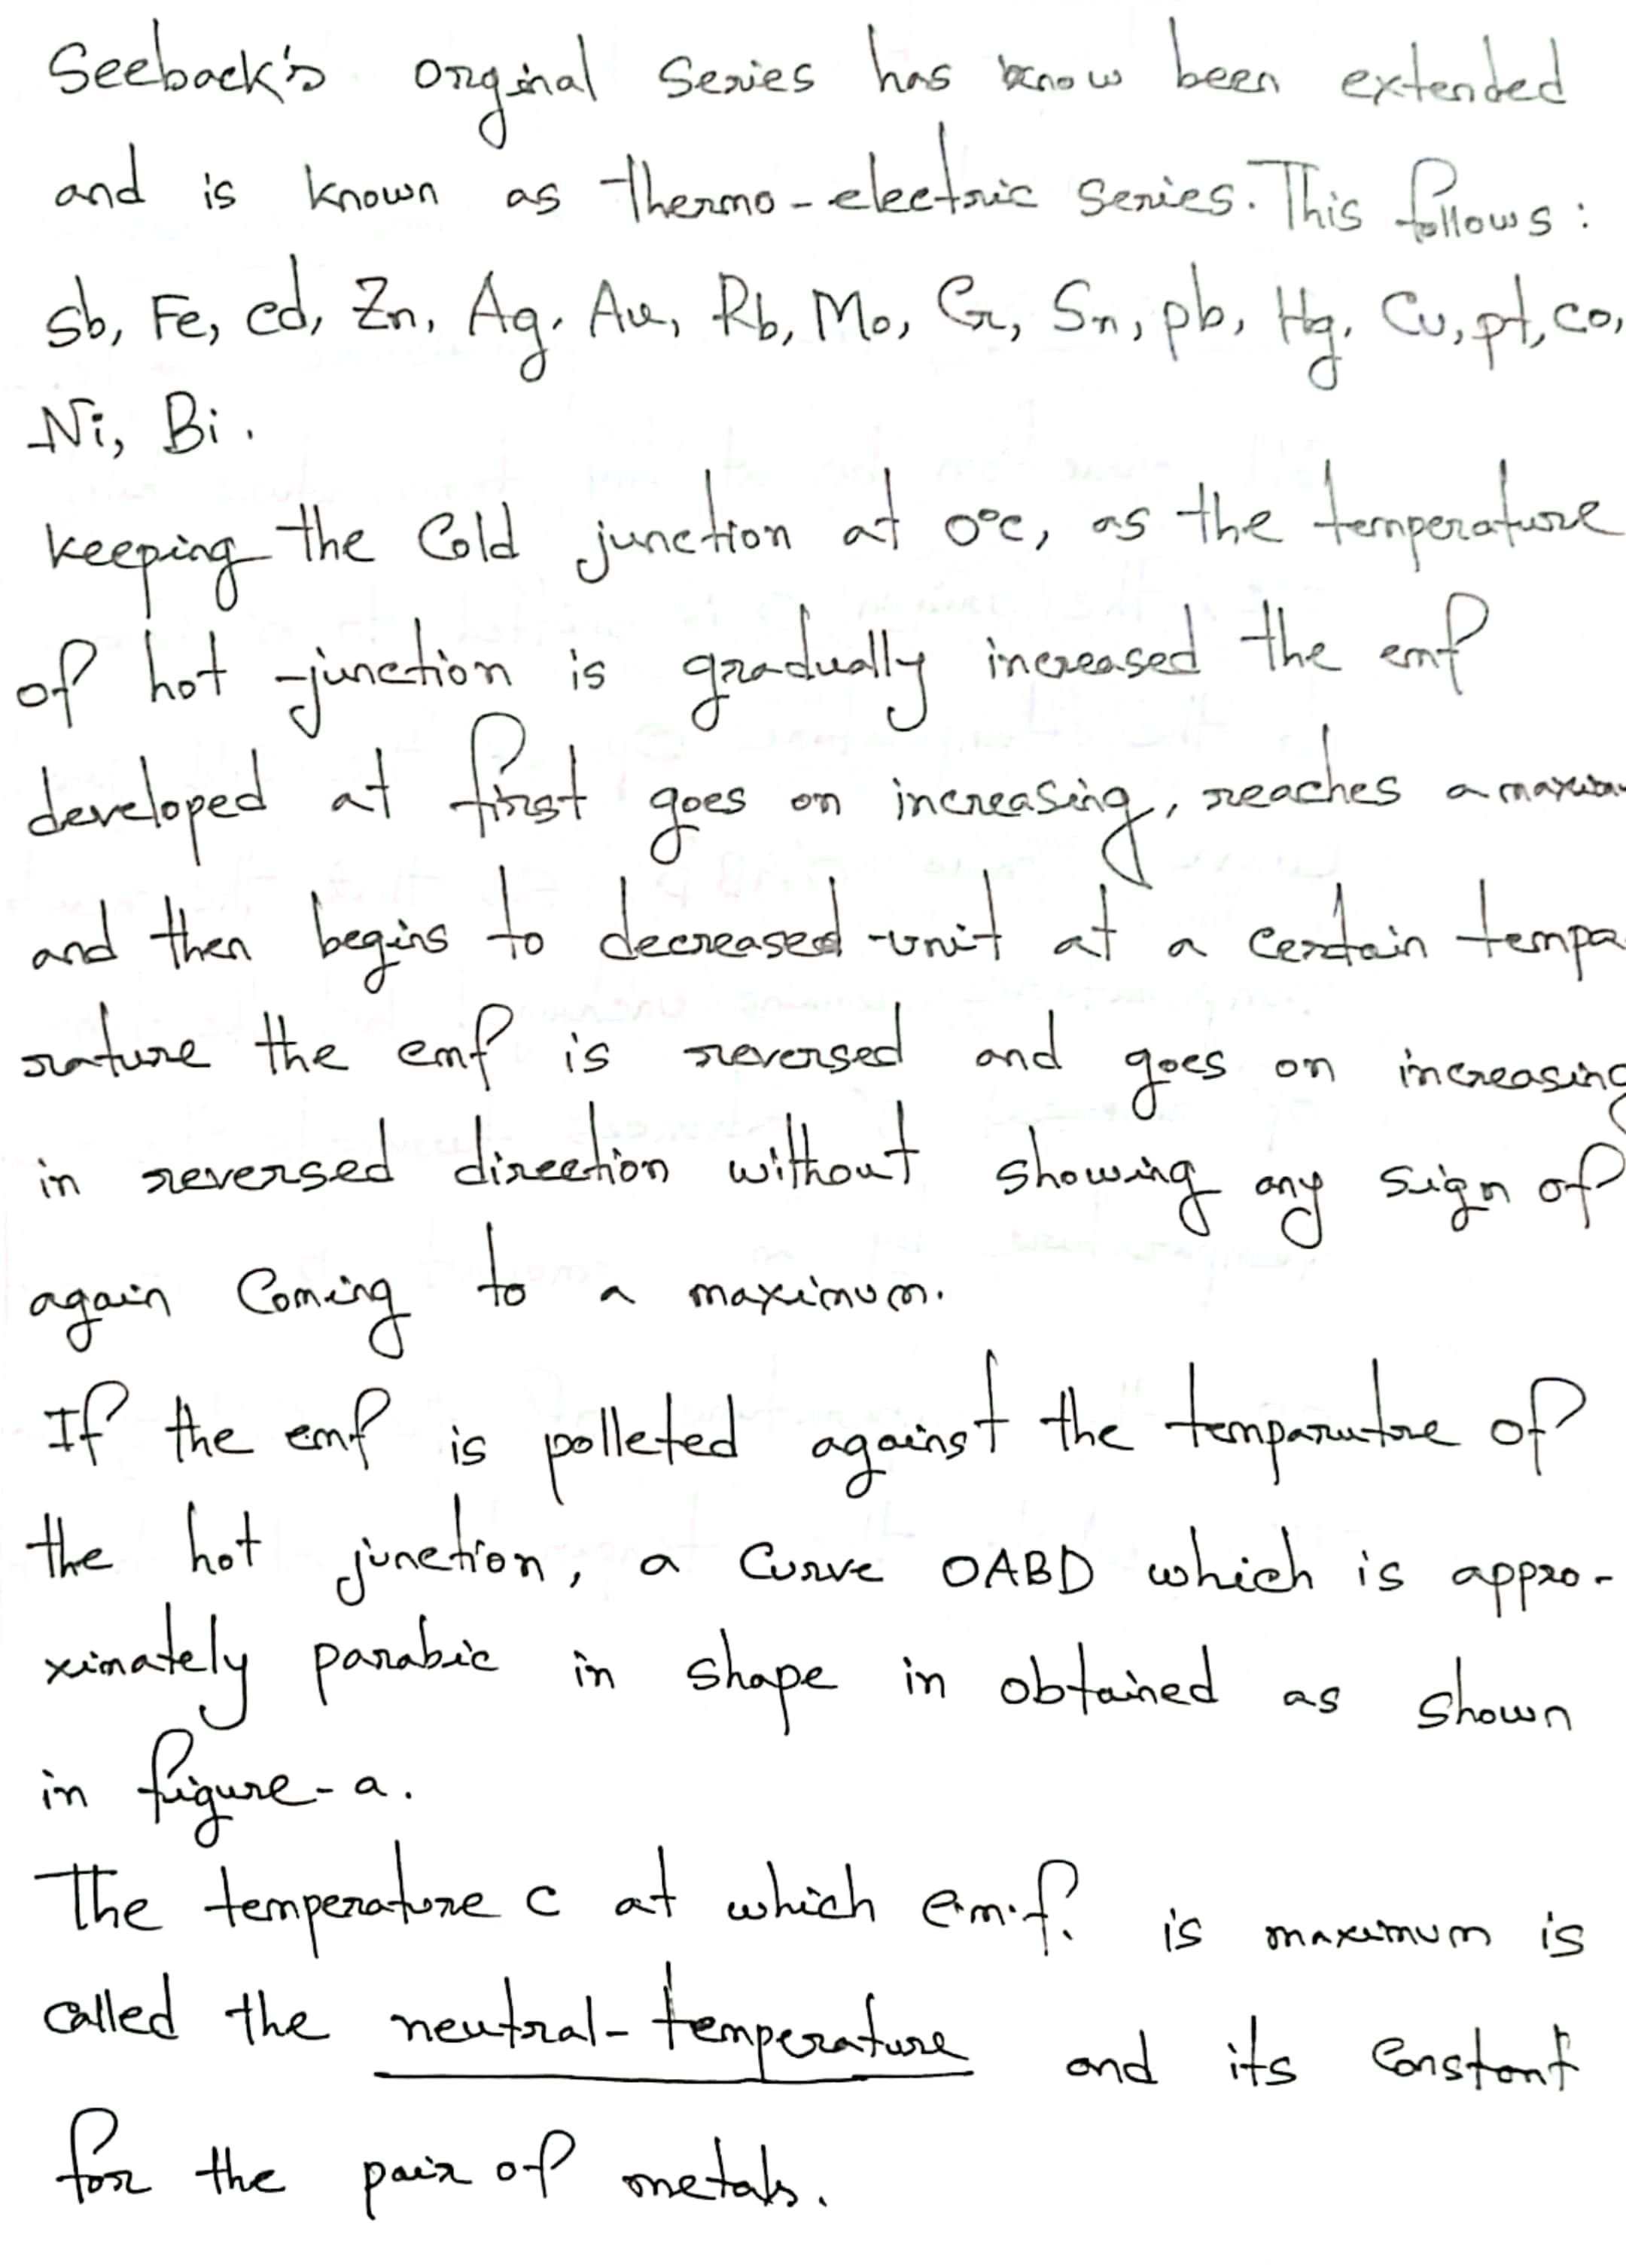 Seeback's orginal series has know been extended
and is known as thermo-electric series. This follows:
Sb, Fe, cd, Zn, Ag, Au, Rb, Mo, Cr, Sn, pb, Hg, Cu, pt, co,
Ni, Bi.
keeping the Cold junction at 0°c, as the temperature
of hot-junction is gradually increased the emf
developed at first goes on increasing, reaches a maxim
and then begins to decreased unit at a certain tempa
rature the emf is reversed and goes on increasing
in reversed direction without showing any sign of
again Coming to a maximum.
If the emf is polleted against the temparutore of
the hot junction, a Curve OABD which is appro-
ximately parabic in shape in obtained as shown
in figure-a.
The temperature c at which e.m.f. is maximum is
called the neutral-temperature and its Constant
for the pair of metals.